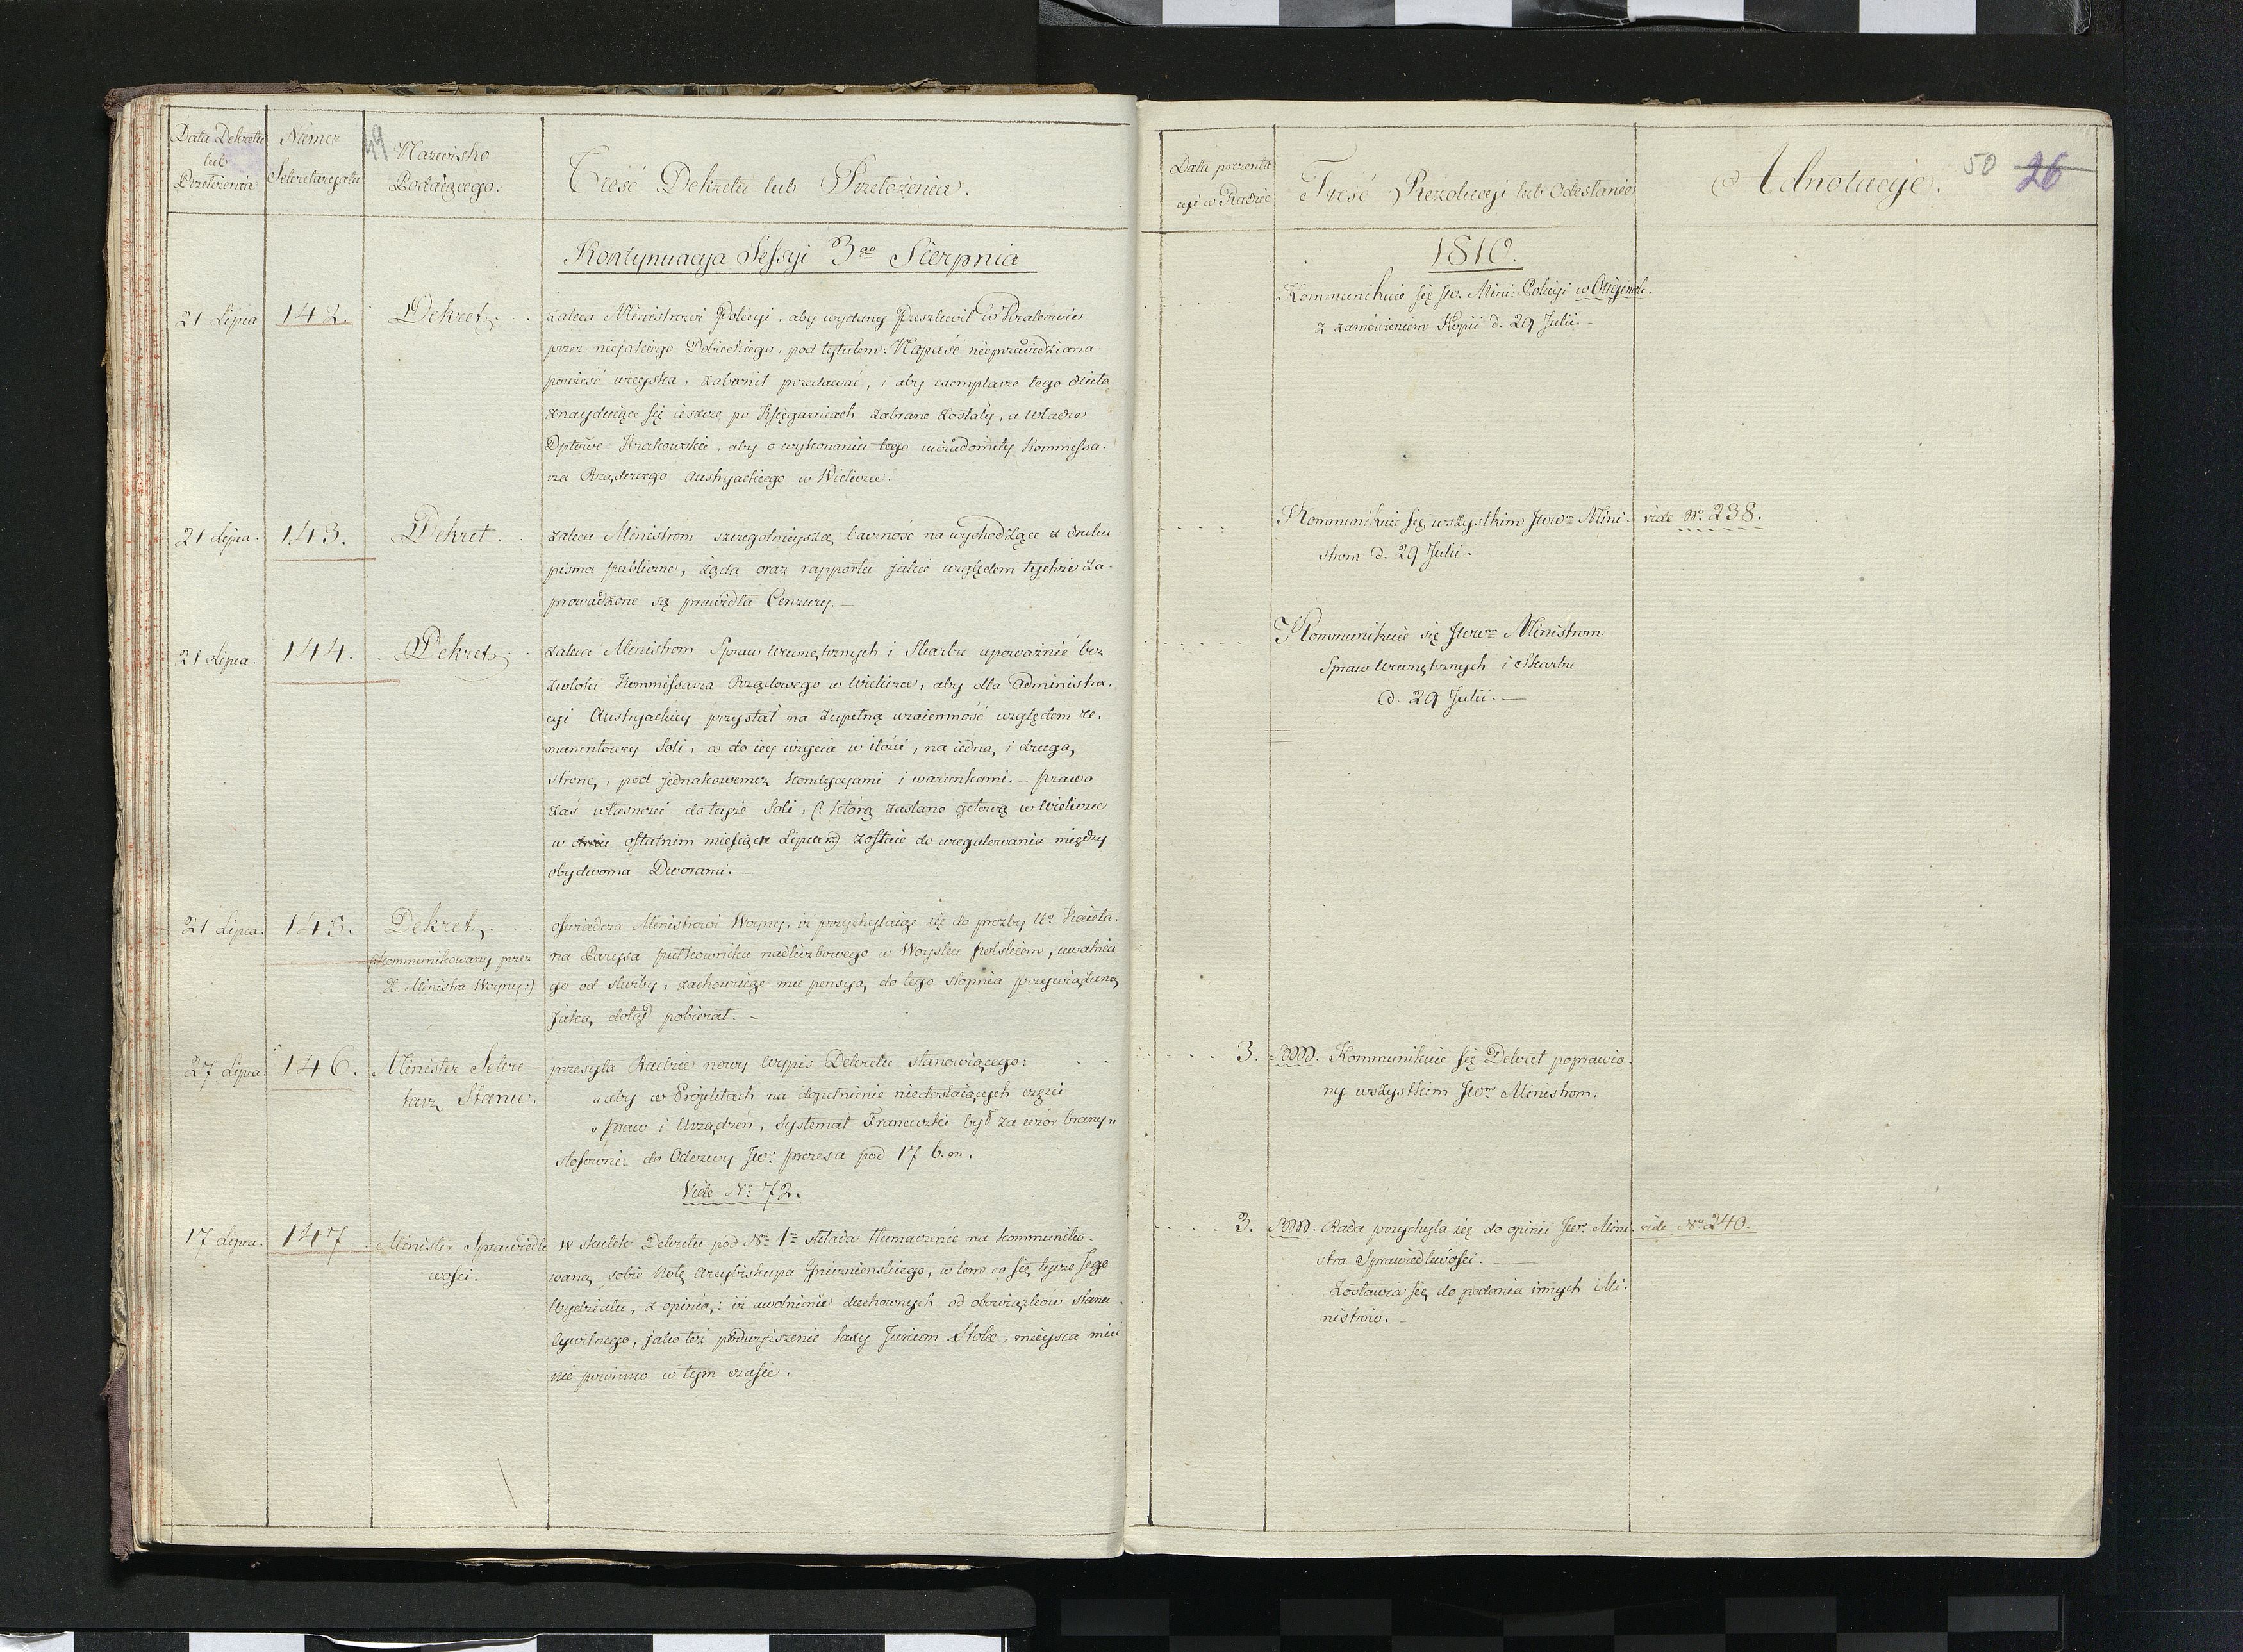 Data Dekretu
lub
Przełożenia
Numer
Sekretaryatu
49
Nazwisko
Podaiącego.
Treść Dekretu lub Przełożenia.
Kontynuacya Sessyi 3go Sierpnia
21 Lipca 142. Dekret.
zaleca Ministrowi Policyi, aby wydany Paszkwil w Krakowie
przez niejakiego Dobieckiego, pod tytułem: Napaść nieprzewidziana
powieść wieyska, zabronił przedawać, i aby exemplarze tego dzieła
znayduiące się ieszcze po Księgarniach zabrane zostały, a władze
Dptowe Krakowskie, aby o wykonaniu tego uwiadomiły Kommissa-
rza Rządowego Austryackiego w Wieliczce.
21 Lipca. 143. Dekret.
zaleca Ministrom szczegolnieyszą baczność na wychodzące z druku
pisma publiczne, żąda oraz rapportu jakie względem tychże za-
prowadzone są prawidła Cenzury. —
21 Lipca. 144. Dekret.
zaleca Ministrom Spraw Wewnętrznych i Skarbu upoważnić bez
zwłoki Kommissarza Rządowego w Wieliczce, aby dla Administra-
cyi Austryackiey przystał na zupełną wzaiemność względem re-
manentowey Soli, co do iey użycia w ilości, na iedną i drugą
stronę, pod jednakowemiż kondycyami i warunkami. — prawo
zaś własności do teyże Soli, (: którą zastano gotową w Wieliczce
w ostatnim miesiącu Lipcu :) zostaie do uregulowania między
obydwoma Dworami. —
21 Lipca. 145. Dekret.
(:Kommunikowany przez
X. Ministra Woyny:)
oświadcza Ministrowi Woyny, iż przychylaiąc się do prożby Uo Kaieta-
na pułkownika nadliczbowego w Woysku polskiem, uwalnia
go od służby, zachowuiąc mu pensyą do tego stopnia przywiązaną
jaką dotąd pobierał. —
27 Lipca. 146. Minister Sekre-
tarz Stanu.
przesyła Radzie nowy Wypis Dekretu stanowiącego:
„aby w Projektach na dopełnienie niedostaiących części
„praw i Urządzeń, Systemat Francuzki był za wzór brany„
stosownie do Odezwy JWo prezesa pod 17 b. m.
Vide No 72.
17 Lipca. 147 Minister Sprawiedli-
wości.
W skutek Dekretu pod No 1m składa tłumaczenie na kommuniko-
waną sobie Notę Arcybiskupa Gnieznienskiego, w tem co się tycze Jego
Wydziału, z opinią: iż uwolnienie duchownych od obowiązków stanu
Cywilnego, jako też podwyższenie taxy Jurium Stolæ, mieysca mieć
nie powinno w tym czasie.
Data prezenta
cyi w Radzie
Treść Rezolucyi lub Odesłanie
Adnotacyje.
50 26
1810.
Kommunikuie się JW. Mini: Policyi w Originale.
z zamówieniem Kopii d. 29 Julii. —
Kommunikuie się wszystkim JWWm Mini-
strom d. 29 Julii.
vide No 238.
Kommunikuie się JWWm Ministrom
Spraw Wewnętrznych i Skarbu
d. 29 Julii. —
3. Kommunikuie się Dekret poprawio-
ny wszystkim JWm Ministrom.
3. Rada przychyla się do opinii JWo Mini-
stra Sprawiedliwości. —
Zostawia się do podania innych Mi-
nistrów. —
vide No 240.